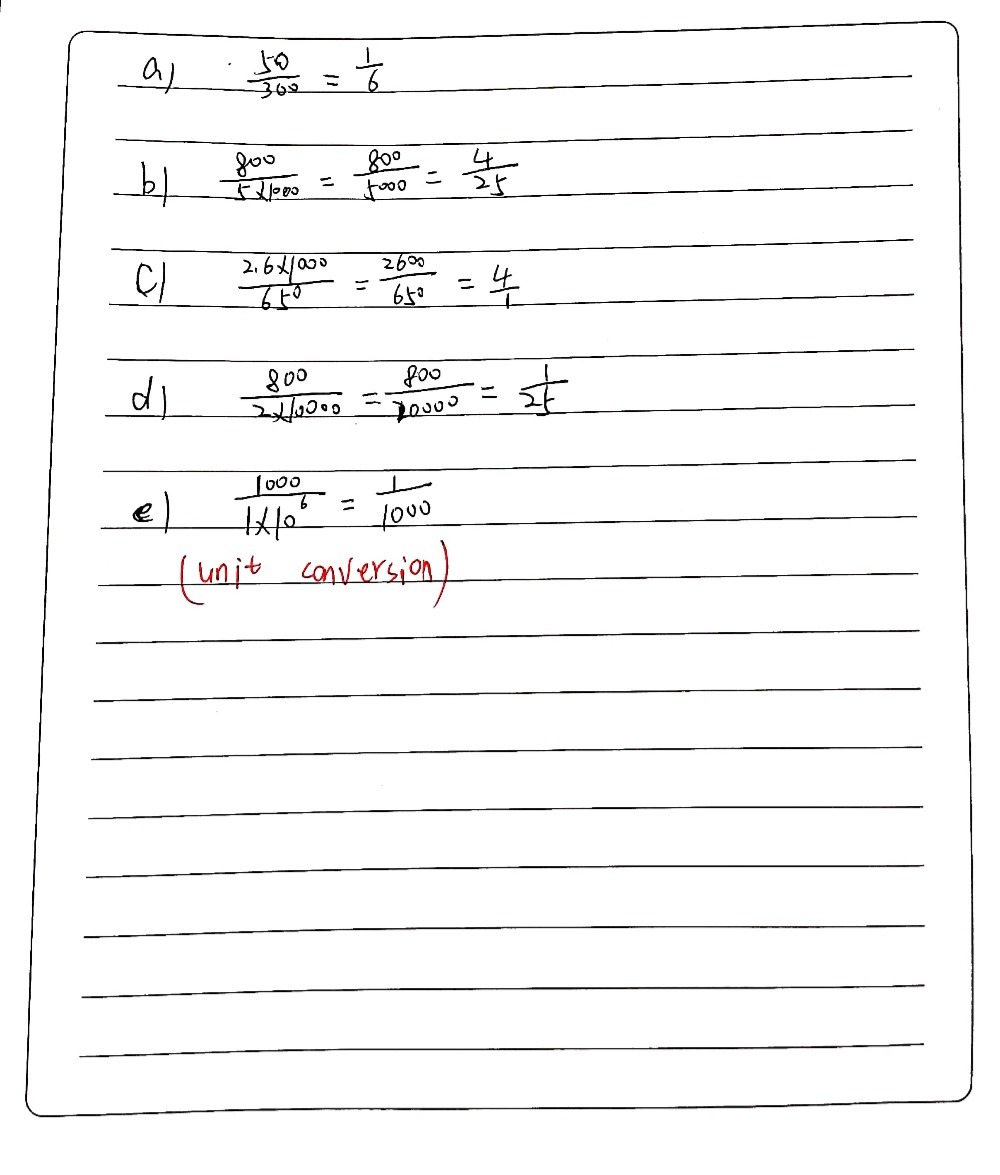 a) 50/300 = 1/6
b) 800/5×1000 = 800/5000 = 4/25
c) 2.6×1000/650 = 2600/650 = 4/1
d) 800/2×10000 = 800/20000 = 1/25
e) 1000/1×10⁶ = 1/1000
(unit conversion)